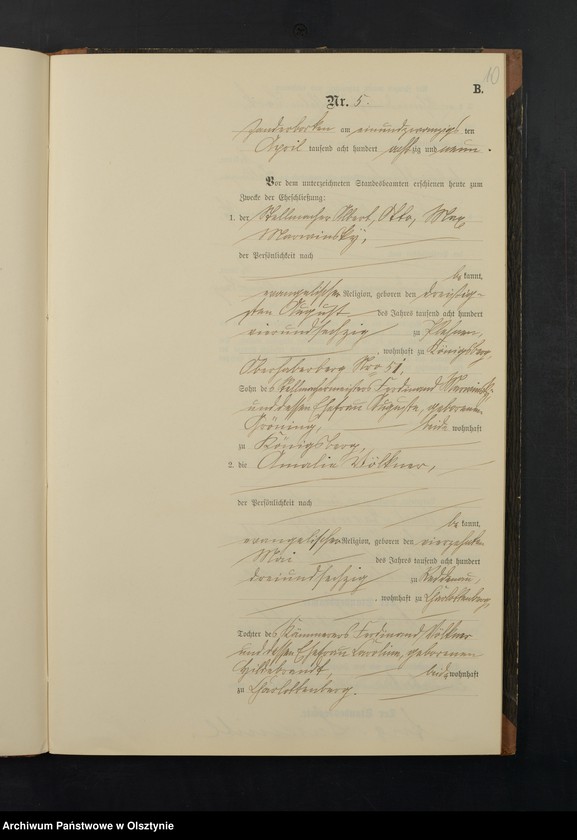 10
B.
Nr. 5.
Sonderborken am einundzwanzigsten
April tausend acht hundert achtzig und neun.
Vor dem unterzeichneten Standesbeamten erschienen heute zum
Zwecke der Eheschließung:
1. der Stellmacher Albert, Otto, Max
Marwinsky,
der Persönlichkeit nach
bekannt,
evangelischer Religion, geboren den dreißig-
sten August des Jahres tausend acht hundert
vierundsechzig zu Plössen,
, wohnhaft zu Königsberg,
Oberhaberberg Nro 51,
Sohn des Stellmachermeisters Ferdinand Marwinsky
und dessen Ehefrau Auguste, geborenen
Gröning, beide wohnhaft
zu Königsberg,
2. die Amalie Völkner,
der Persönlichkeit nach
bekannt,
evangelischer Religion, geboren den vierzehnten
Mai des Jahres tausend acht hundert
dreiundsechzig zu Reddenau,
, wohnhaft zu Charlottenberg,
Tochter des Kämmerers Ferdinand Völkner
und dessen Ehefrau Caroline, geborenen
Hildebrandt, beide wohnhaft
zu Charlottenberg.
Archiwum Państwowe w Olsztynie